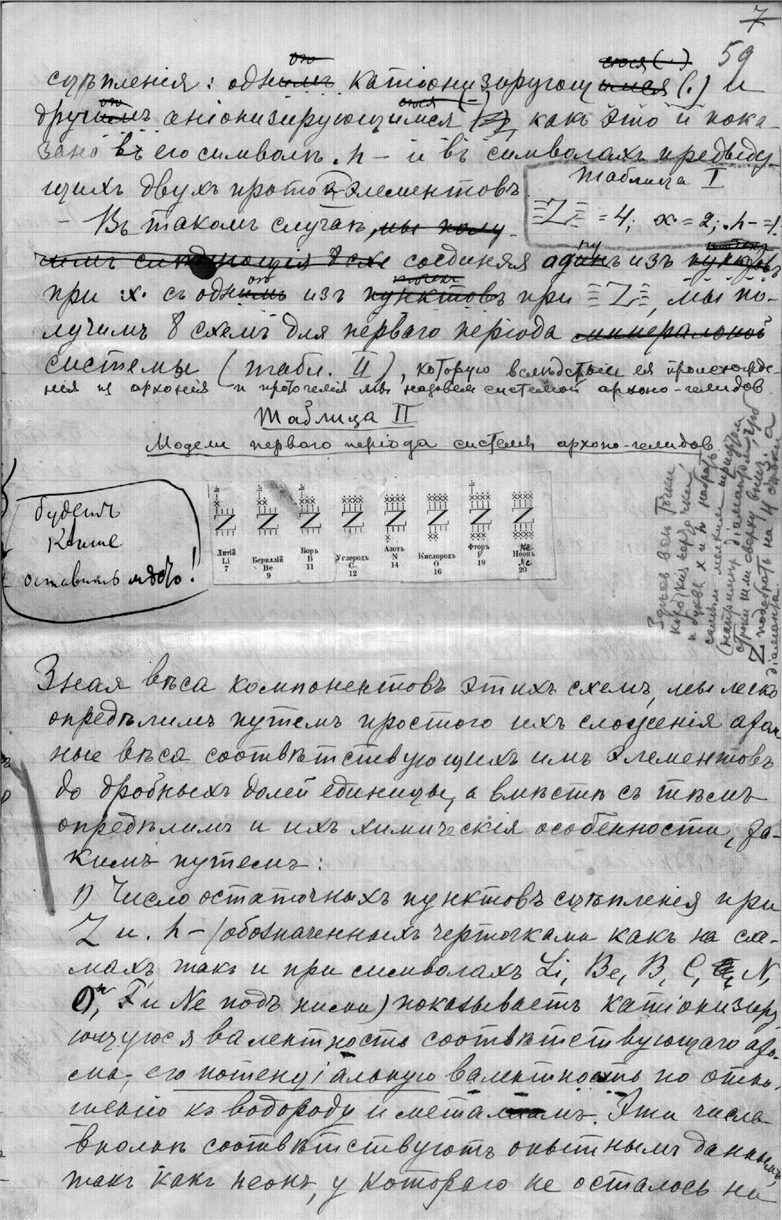 7
59
сцѣпленія: одною катіонизирующеюся (·) и
другою аніонизирующеюся (−), какъ это и пока-
зано въ его символѣ .h− и въ символахъ предыду-
щихъ двухъ протоэлементовъ
Таблица I
Z = 4; x = 2; .h− = 1.
— Въ такомъ случаѣ, мы полу-
чимъ слѣдующія 8 схе соединяя одинъ изъ пунктовъ
при .x. съ однимъ изъ пунктовъ при Z, мы по-
лучимъ 8 схемъ для перваго періода минеральной
системы (табл. II), которую вслѣдствіи ея происхожде-
нія из архонія и протогелія мы назовем системой архоно-гелидов
Таблица II
Модели первого періода системы архоно-гелидов
Литій
Li
7
Бериллій
Be
9
Боръ
B
11
Углеродъ
C
12
Азотъ
N
14
Кислородъ
O
16
Фторъ
F
19
Неонъ
Ne
20
будетъ
Клише
оставить мѣсто!
Зная вѣса компонентовъ этихъ схемъ, мы легко
опредѣлимъ путемъ простого ихъ сложенія атом
ные вѣса соотвѣтствующихъ имъ элементовъ
до дробныхъ долей единицы, а вмѣстѣ съ тѣмъ
опредѣлимъ и ихъ химическія особенности, та-
кимъ путемъ:
1) Число остаточныхъ пунктовъ сцѣпленія при
Z и .h− (обозначенныхъ черточками какъ на схе-
махъ, такъ и при символахъ Li, Be, B, C, N,
O, F и Ne подъ ними) показываетъ катіонизиру
ющуюся валентность соотвѣтствующаго ато-
ма, его потенціальную валентность по отно-
шенію къ водороду и металламъ. Эти числа
вполнѣ соотвѣтствуютъ опытнымъ даннымъ,
такъ какъ неонъ, у котораго не осталось на